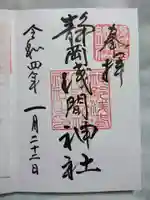 奉拝
静岡浅間神社
令和四年
一月二十三日